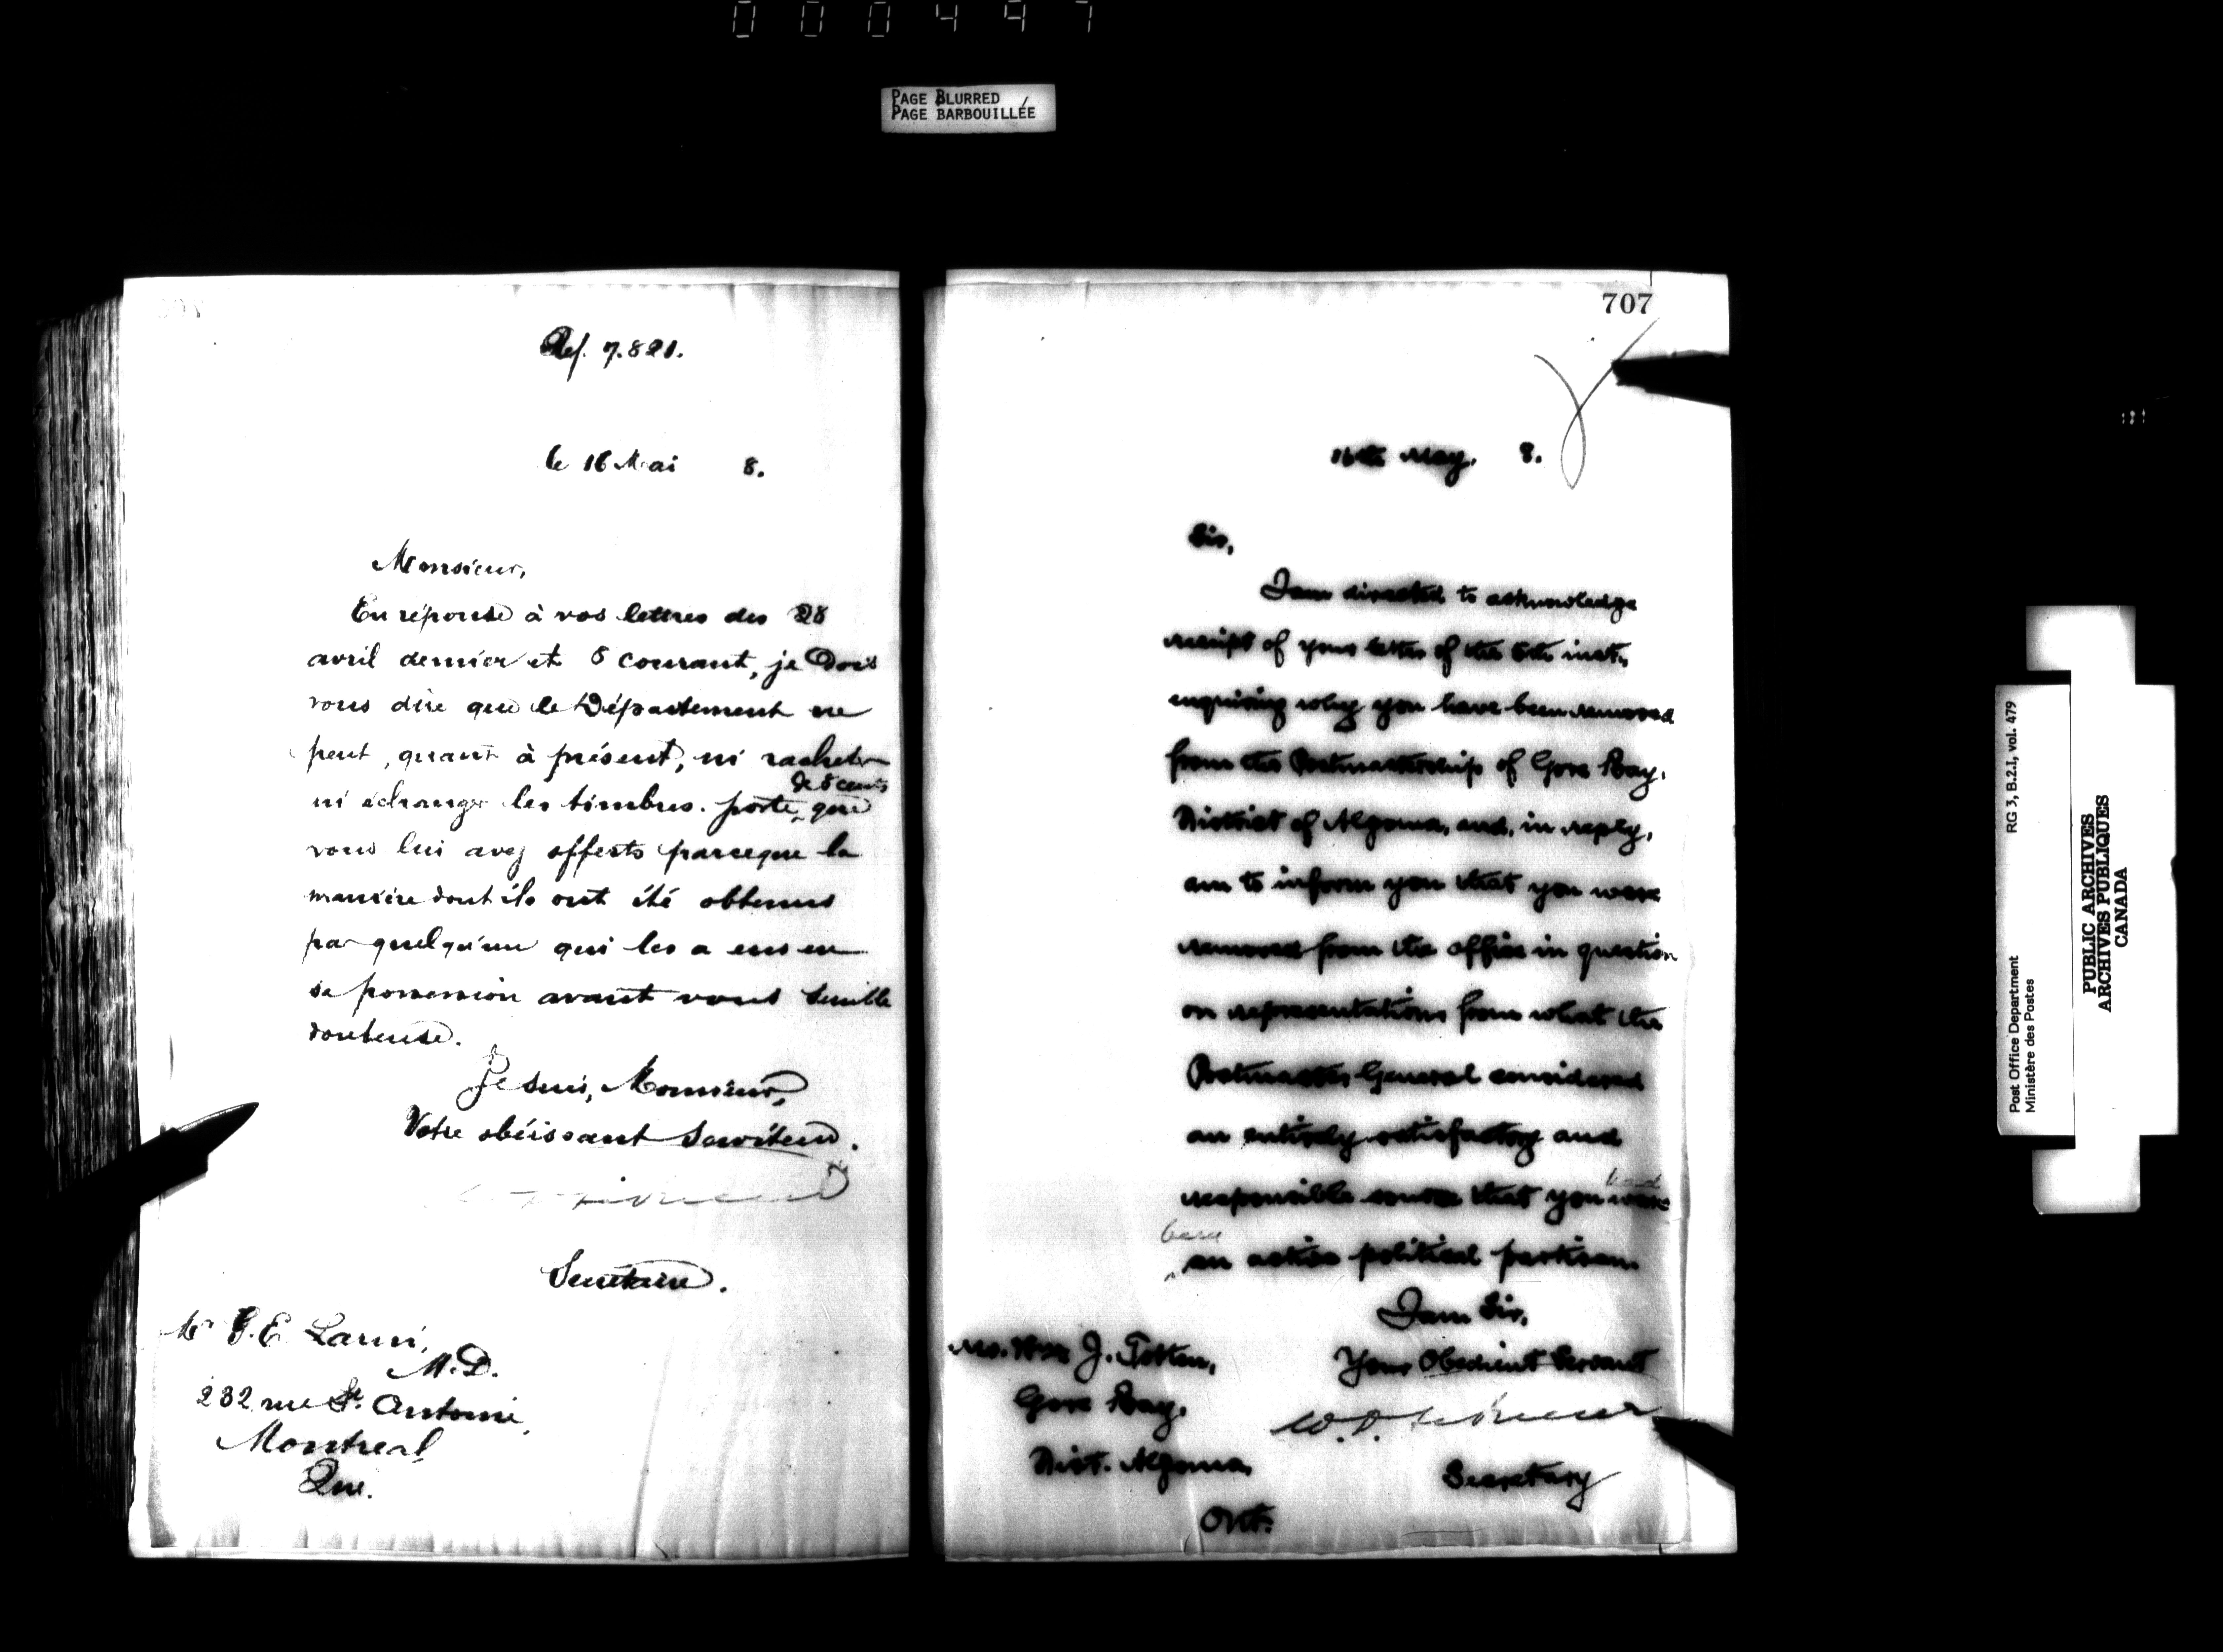 000497
PAGE BLURRED
PAGE BARBOUILLÉE
Ref. 7.821.
le 16 Mai 8.
Monsieur,
En réponse à vos lettres des 28
avril dernier et 5 courant, je dois
vous dire que le Département ne
peut, quant à présent, ni racheter
ni échanger les timbres-poste de 5 cents que
vous lui avez offerts parceque la
manière dont ils ont été obtenus
par quelqu'un qui les a eus en
sa possession avant vous semble
douteuse.
Je suis, Monsieur,
Votre obéissant Serviteur.
Secrétaire.
M. E.
M.D.
232 rue St. Antoine,
Montreal
Que.
707
16th May, 8.
Sir,
I am directed to acknowledge
receipt of your letter of the 5th inst.,
enquiring why you have been removed
from the Postmastership of Gore Bay,
District of Algoma, and, in reply,
am to inform you that you were
removed from the office in question
on representations from what the
Postmaster General considered
an entirely satisfactory and
responsible source that you had
been
an active political partisan.
I am Sir,
Your Obedient Servant
Secretary
Mr. Wm J. Totten,
Gore Bay,
Dist. Algoma,
Ont.
Post Office Department RG 3, B.2.I, vol. 479
Ministère des Postes
PUBLIC ARCHIVES
ARCHIVES PUBLIQUES
CANADA